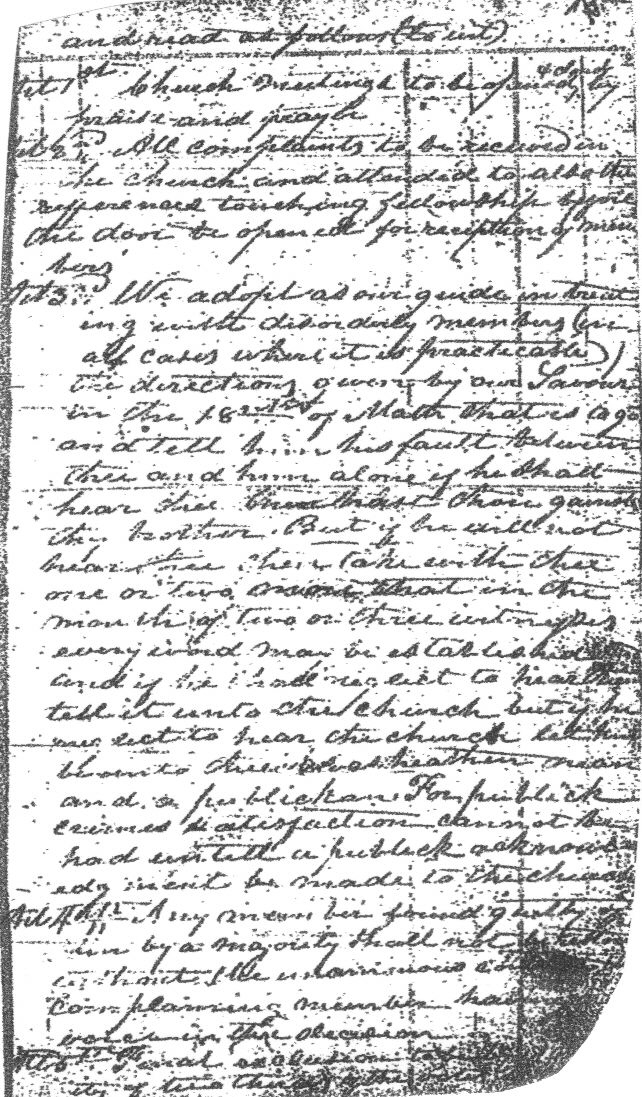 and read as follows (to wit)
Art 1st Church meetings to be opened & closed by
praise and prayer
Art 2nd All complaints to be received in
the church and attended to also the
refferences touching fellowship before
the door be opened for reception of mem
bers
Art 3rd We adopt as our guide in treat
ing with disorderly members (in
all cases where it is practicable)
the directions given by our Saviour
in the 18th of Math that is (go
and tell him his fault between
thee and him alone if he shall
hear thee thou hast gained
thy brother. But if he will not
hear thee then take with thee
one or two more that in the
mouth of two or three witnesses
every word may be established
and if he shall neglect to hear them
tell it unto the church but if he
neglect to hear the church let him
be unto thee as heathen man
and a publickan. For publick
crimes satisfaction cannot be
had untill a publick acknowl
edgment be made to the church
Art 4th Any member found guilty
by a majority shall not
without the unanimous
complaining member
voice in the decision
Art 5th Final exclusion
ity of two thirds of the